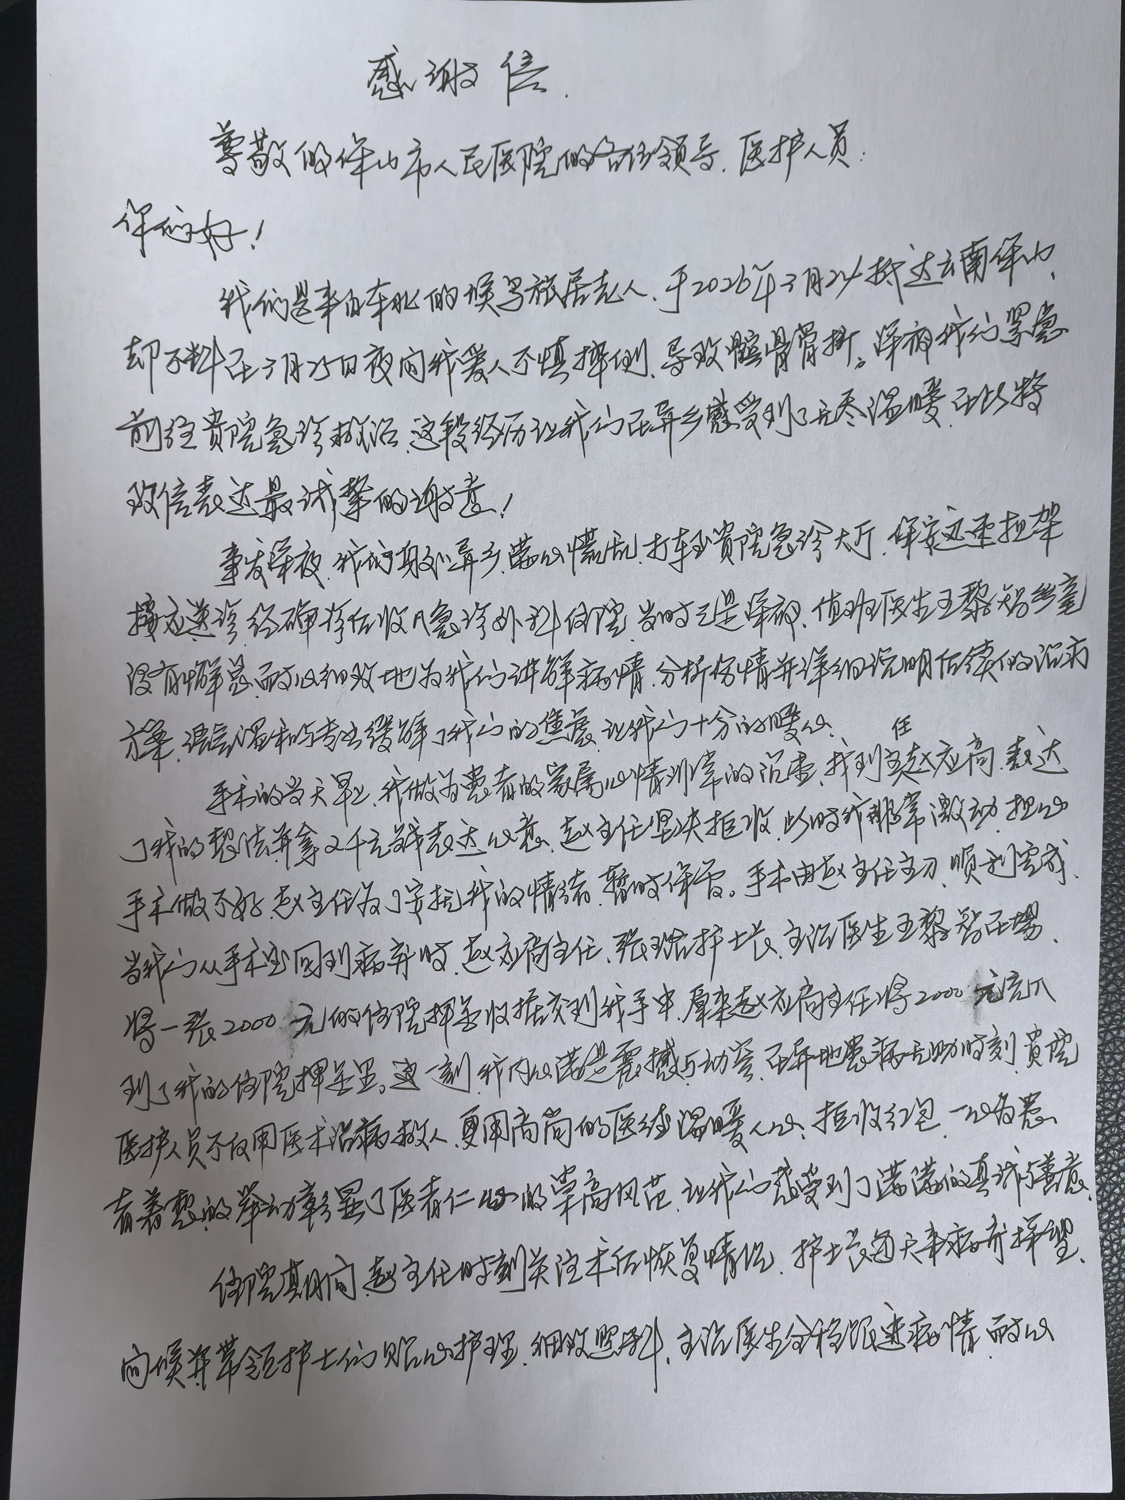 感谢信
尊敬的保山市人民医院的各位领导、医护人员：
你们好！
我们是来自东北的候鸟旅居老人，于2026年3月24抵达云南保山，
却不料在3月25日夜间我爱人不慎摔倒，导致髌骨骨折。深夜我们紧急
前往贵院急诊救治，这段经历让我们在异乡感受到了无尽温暖，在此特
致信表达最诚挚的谢意！
事发深夜，我们身处异乡，满心慌乱，打车到贵院急诊大厅，保安迅速担架
接应送诊，经确诊后收入急诊外科住院，当时已是深夜，值班医生王黎智丝毫
没有懈怠，耐心细致地为我们讲解病情，分析伤情并详细说明后续的治病
方案，语气温和与专业缓解了我们的焦虑，让我们十分的暖心。
手术的当天早上，我做为患者的家属心情非常的沉重，找到主任赵应高，表达
了我的想法并拿2千元钱表达心意，赵主任坚决拒收，此时我非常激动，担心
手术做不好，赵主任为了安抚我的情绪，暂时保管。手术由赵主任主刀，顺利完成，
当我们从手术室回到病房时，赵应高主任、张护士长、主治医生王黎智在场，
将一张2000元的住院押金收据交到我手中，原来赵应高主任将2000元充入
到了我的住院押金里。这一刻，我内心满是震撼与动容，在异地患病无助时刻，贵院
医护人员不仅用医术治病救人，更用高尚的医德温暖人心，拒收红包，一心为患
者着想的举动彰显了医者仁心的崇高风范，让我们感受到了满满的真诚与善意。
住院期间，赵主任时刻关注术后恢复情况，护士长每天来病房探望、
问候并带领护士们贴心护理，细致照料，主治医生全程跟进病情，耐心